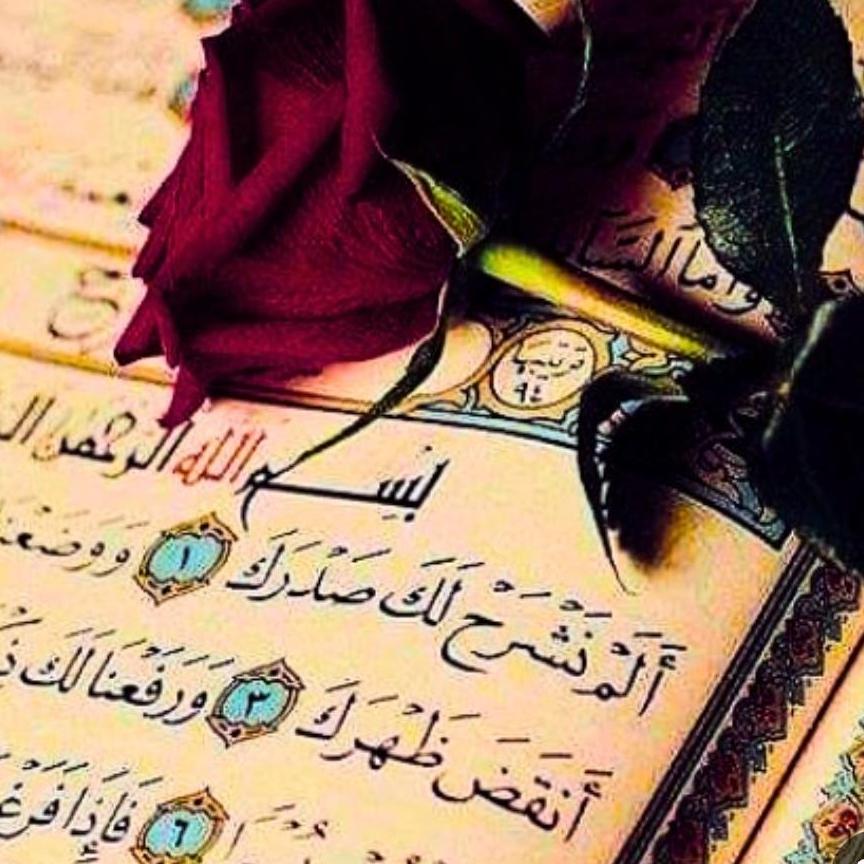 وَأَمَّا السَّا
ترتيبها
٩٤
بِسْمِ اللَّهِ الرَّحْمَٰنِ
أَلَمْ نَشْرَحْ لَكَ صَدْرَكَ ١ وَوَضَعْنَا
أَنقَضَ ظَهْرَكَ ٣ وَرَفَعْنَا لَكَ
٦ فَإِذَا فَرَغْ